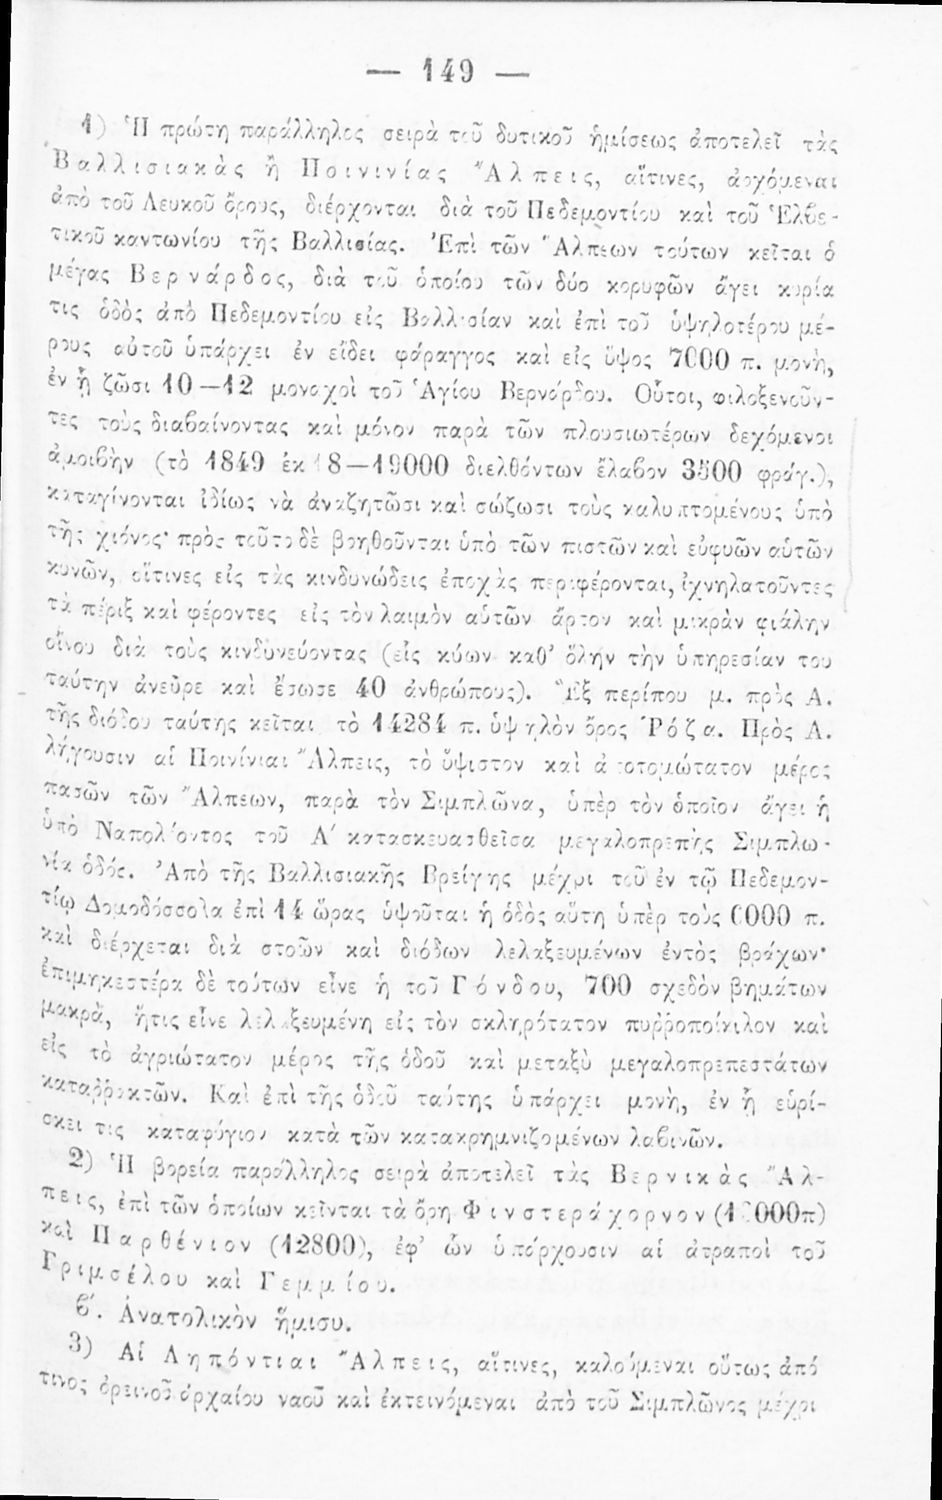 — 149 —
1) Ἡ πρώτη παράλληλος σειρὰ τοῦ δυτικοῦ ἡμίσεως ἀποτελεῖ τὰς
Βαλλισιακὰς ἢ Ποινινίας Ἄλπεις, αἵτινες, ἀρχόμεναι
ἀπὸ τοῦ Λευκοῦ ὄρους, διέρχονται διὰ τοῦ Πεδεμοντίου καὶ τοῦ Ἑλβε-
τικοῦ καντωνίου τῆς Βαλλισίας. Ἐπὶ τῶν Ἄλπεων τούτων κεῖται ὁ
μέγας Βερνάρδος, διὰ τοῦ ὁποίου τῶν δύο κορυφῶν ἄγει κυρία
τις ὁδὸς ἀπὸ Πεδεμοντίου εἰς Βαλλισίαν καὶ ἐπὶ τοῦ ὑψηλοτέρου μέ-
ρους αὐτοῦ ὑπάρχει ἐν εἴδει φάραγγος καὶ εἰς ὕψος 7000 π. μονὴ,
ἐν ᾗ ζῶσι 10—12 μοναχοὶ τοῦ Ἁγίου Βερνάρδου. Οὗτοι, φιλοξενοῦν-
τες τοὺς διαβαίνοντας καὶ μόνον παρὰ τῶν πλουσιωτέρων δεχόμενοι
ἀμοιβὴν (τὸ 1849 ἐκ 18—19000 διελθόντων ἔλαβον 3500 φράγ.),
καταγίνονται ἰδίως νὰ ἀναζητῶσι καὶ σώζωσι τοὺς καλυπτομένους ὑπὸ
τῆς χιόνος· πρὸς τοῦτο δὲ βοηθοῦνται ὑπὸ τῶν πιστῶν καὶ εὐφυῶν αὑτῶν
κυνῶν, οἵτινες εἰς τὰς κινδυνώδεις ἐποχὰς περιφέρονται, ἰχνηλατοῦντες
τὰ πέριξ καὶ φέροντες εἰς τὸν λαιμὸν αὑτῶν ἄρτον καὶ μικρὰν φιάλην
οἴνου διὰ τοὺς κινδυνεύοντας (εἷς κύων καθ' ὅλην τὴν ὑπηρεσίαν του
ταύτην ἀνεῦρε καὶ ἔσωσε 40 ἀνθρώπους). Ἓξ περίπου μ. πρὸς Α.
τῆς διόδου ταύτης κεῖται τὸ 14284 π. ὑψηλὸν ὄρος Ῥόζα. Πρὸς Α.
λήγουσιν αἱ Ποινίνιαι Ἄλπεις, τὸ ὕψιστον καὶ ἀποτομώτατον μέρος
πασῶν τῶν Ἄλπεων, παρὰ τὸν Σιμπλῶνα, ὑπὲρ τὸν ὁποῖον ἄγει ἡ
ὑπὸ Ναπολέοντος τοῦ Α' κατασκευασθεῖσα μεγαλοπρεπὴς Σιμπλω-
νία ὁδός. Ἀπὸ τῆς Βαλλισιακῆς Βρείγης μέχρι τοῦ ἐν τῷ Πεδεμον-
τίῳ Δομοδόσσολα ἐπὶ 14 ὥρας ὑψοῦται ἡ ὁδὸς αὕτη ὑπὲρ τοὺς 6000 π.
καὶ διέρχεται διὰ στοῶν καὶ διόδων λελαξευμένων ἐντὸς βράχων·
ἐπιμηκεστέρα δὲ τούτων εἶνε ἡ τοῦ Γόνδου, 700 σχεδὸν βημάτων
μακρὰ, ἥτις εἶνε λελαξευμένη εἰς τὸν σκληρότατον πυῤῥοποίκιλον καὶ
εἰς τὸ ἀγριώτατον μέρος τῆς ὁδοῦ καὶ μεταξὺ μεγαλοπρεπεστάτων
καταῤῥακτῶν. Καὶ ἐπὶ τῆς ὁδοῦ ταύτης ὑπάρχει μονὴ, ἐν ᾗ εὑρί-
σκει τις καταφύγιον κατὰ τῶν κατακρημνιζομένων λαβινῶν.
2) Ἡ βορεία παράλληλος σειρὰ ἀποτελεῖ τὰς Βερνικὰς Ἄλ-
πεις, ἐπὶ τῶν ὁποίων κεῖνται τὰ ὄρη Φινστεράχορνον
καὶ Παρθένιον (12800), ἐφ' ὧν ὑπάρχουσιν αἱ ἀτραποὶ τοῦ
Γριμσέλου καὶ Γεμμίου.
β'. Ἀνατολικὸν ἥμισυ.
3) Αἱ Ληπόντιαι Ἄλπεις, αἵτινες, καλούμεναι οὕτως ἀπό
τινος ὀρεινοῦ ἀρχαίου ναοῦ καὶ ἐκτεινόμεναι ἀπὸ τοῦ Σιμπλῶνος μέχρι